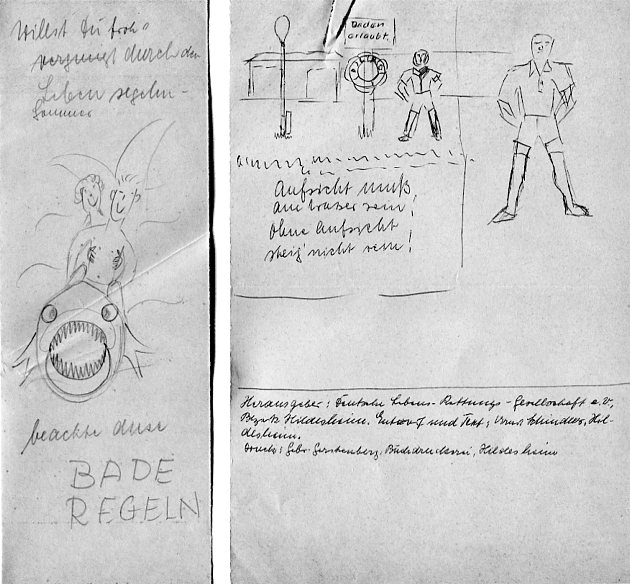 Willst Du froh u.
vergnügt durch den
Leben segeln-
Sommer
beachte diese
BADE
REGELN
Baden
erlaubt.
DLRG
Aufsicht muß
am Wasser sein,
Ohne Aufsicht
steig' nicht rein!
Herausgeber: Deutsche Lebens-Rettungs-Gesellschaft e.V.,
Bezirk Hildesheim. Entwurf und Text: Ernst Schindler, Hil-
desheim.
Druck: Gebr. Gerstenberg, Buchdruckerei, Hildesheim